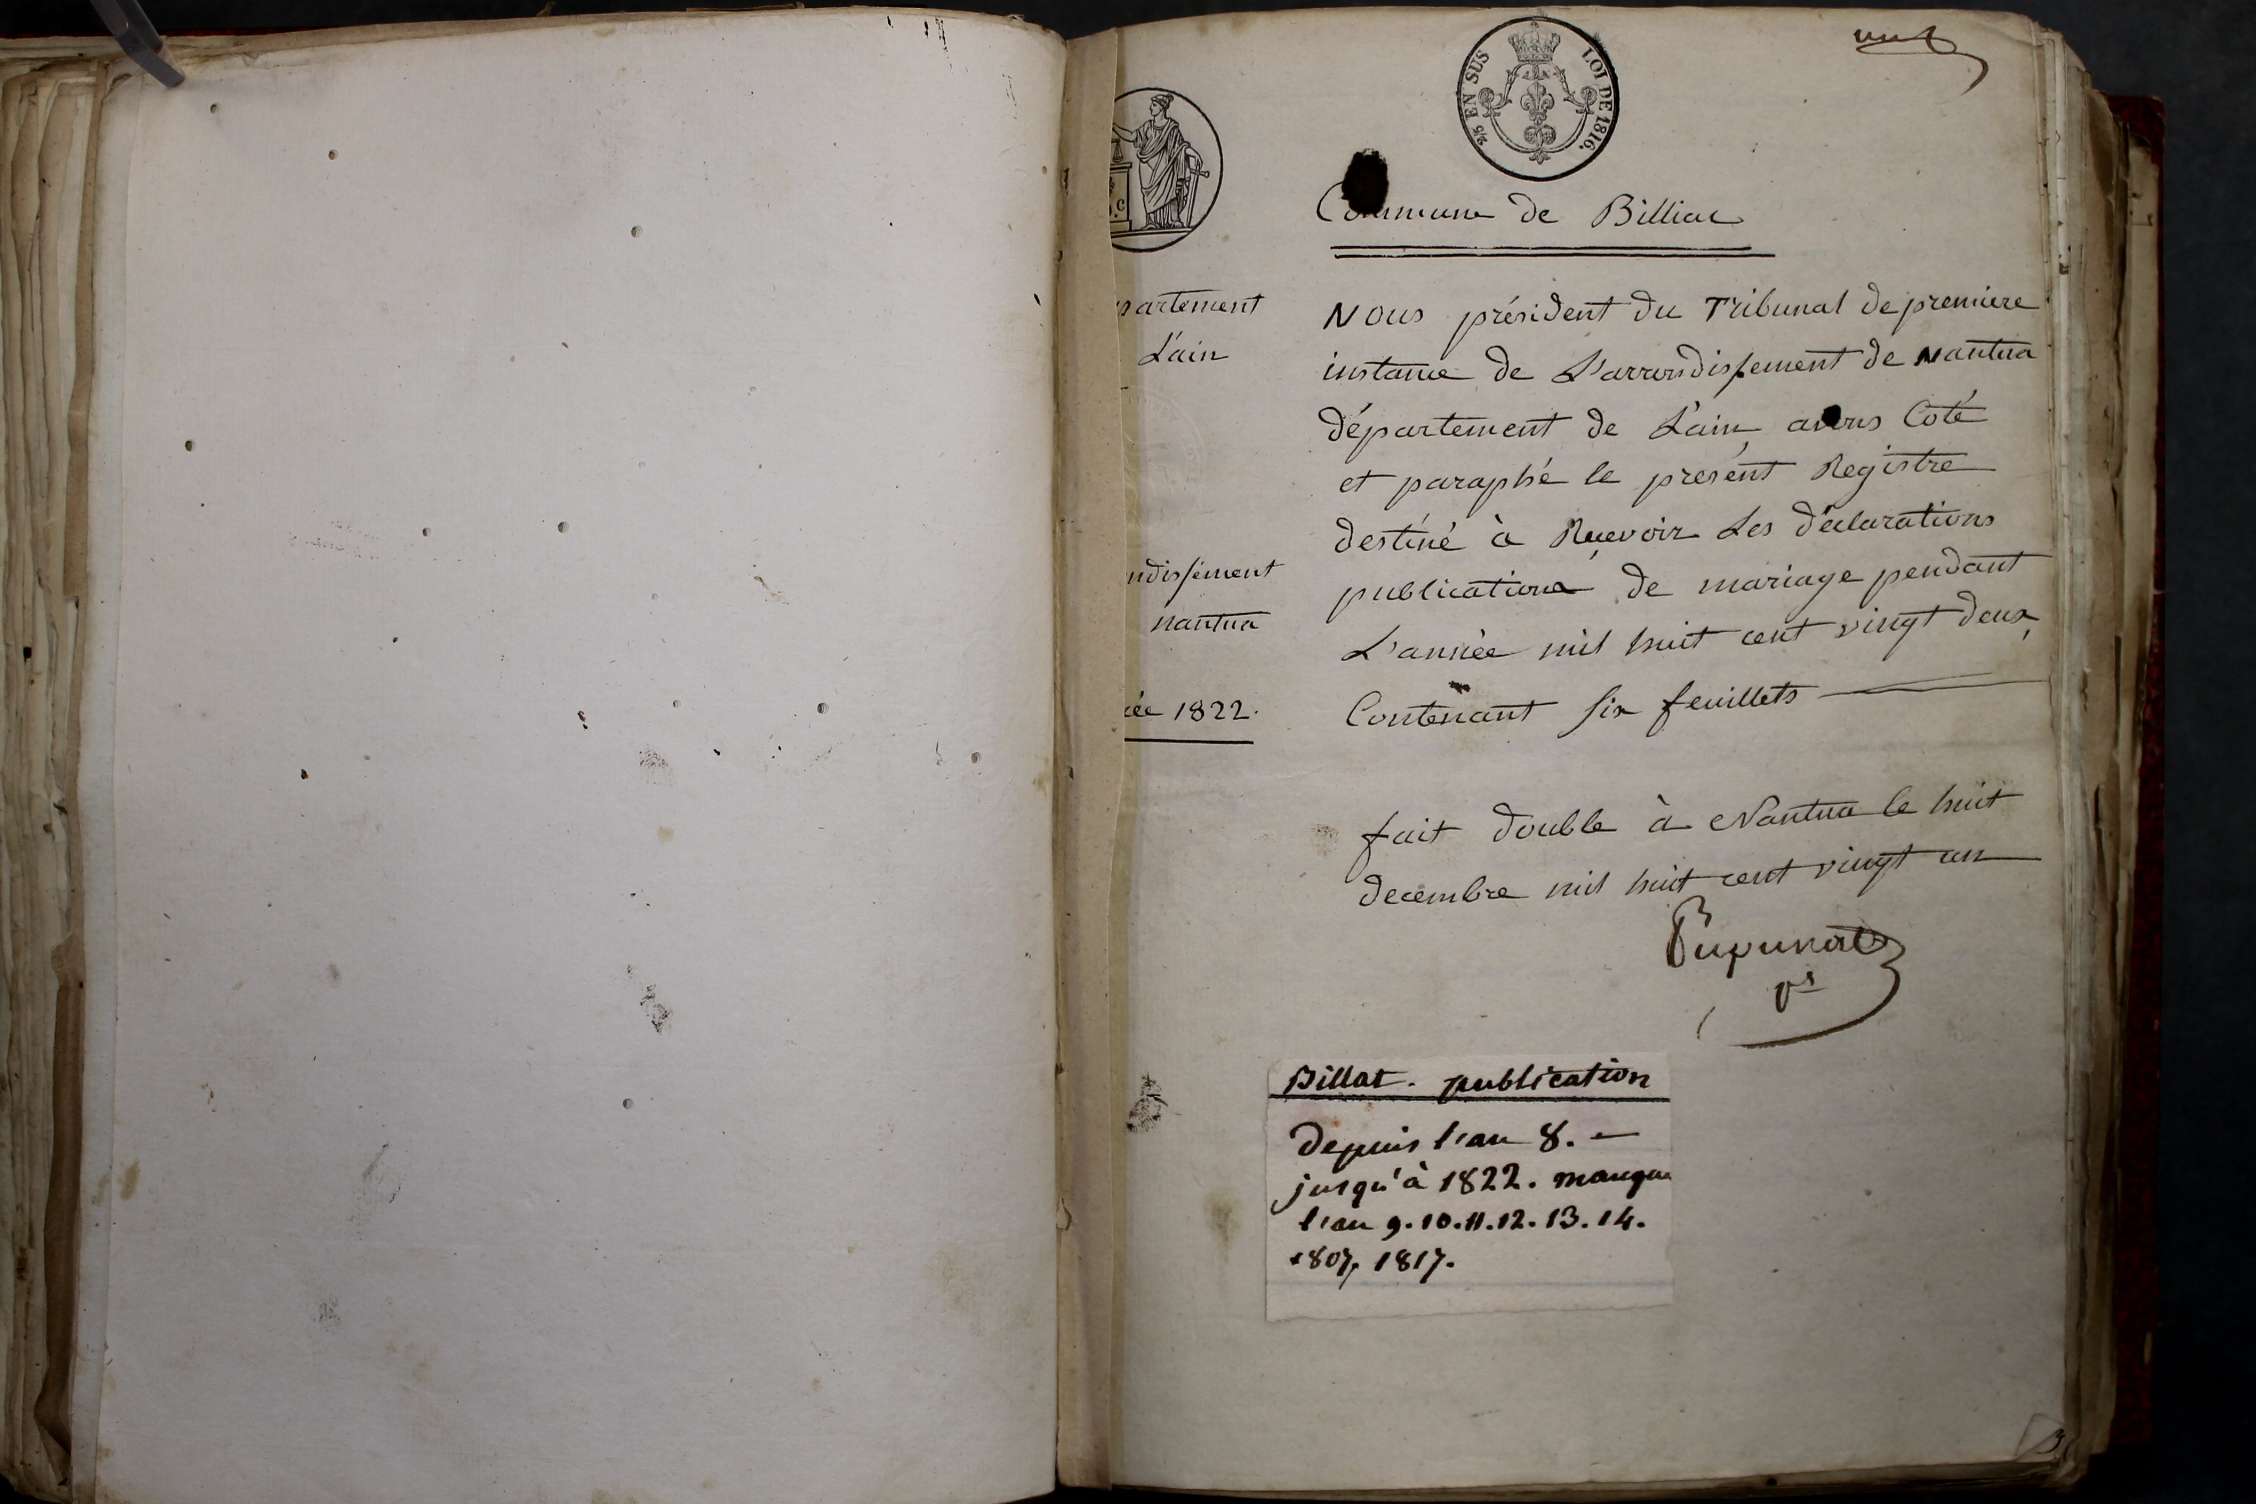 un
2/5 EN SUS LOI DE 1816.
.C
Commune de Billiat
partement
L'ain
ndissement
nantua
ée 1822.
Nous président du Tribunal de premiere
instance de L'arrondissement de Nantua
département de L'ain, avons Coté
et paraphé le présent Registre
destiné à Recevoir Les déclarations
publications de mariage pendant
L'année mil huit cent vingt deux,
Contenant six feuillets
fait double à Nantua le huit
decembre mil huit cent vingt un
Pupunat
Billat. publication
Depuis l'an 8. —
jusqu'à 1822. manque
l'an 9.10.11.12.13.14.
1807, 1817.